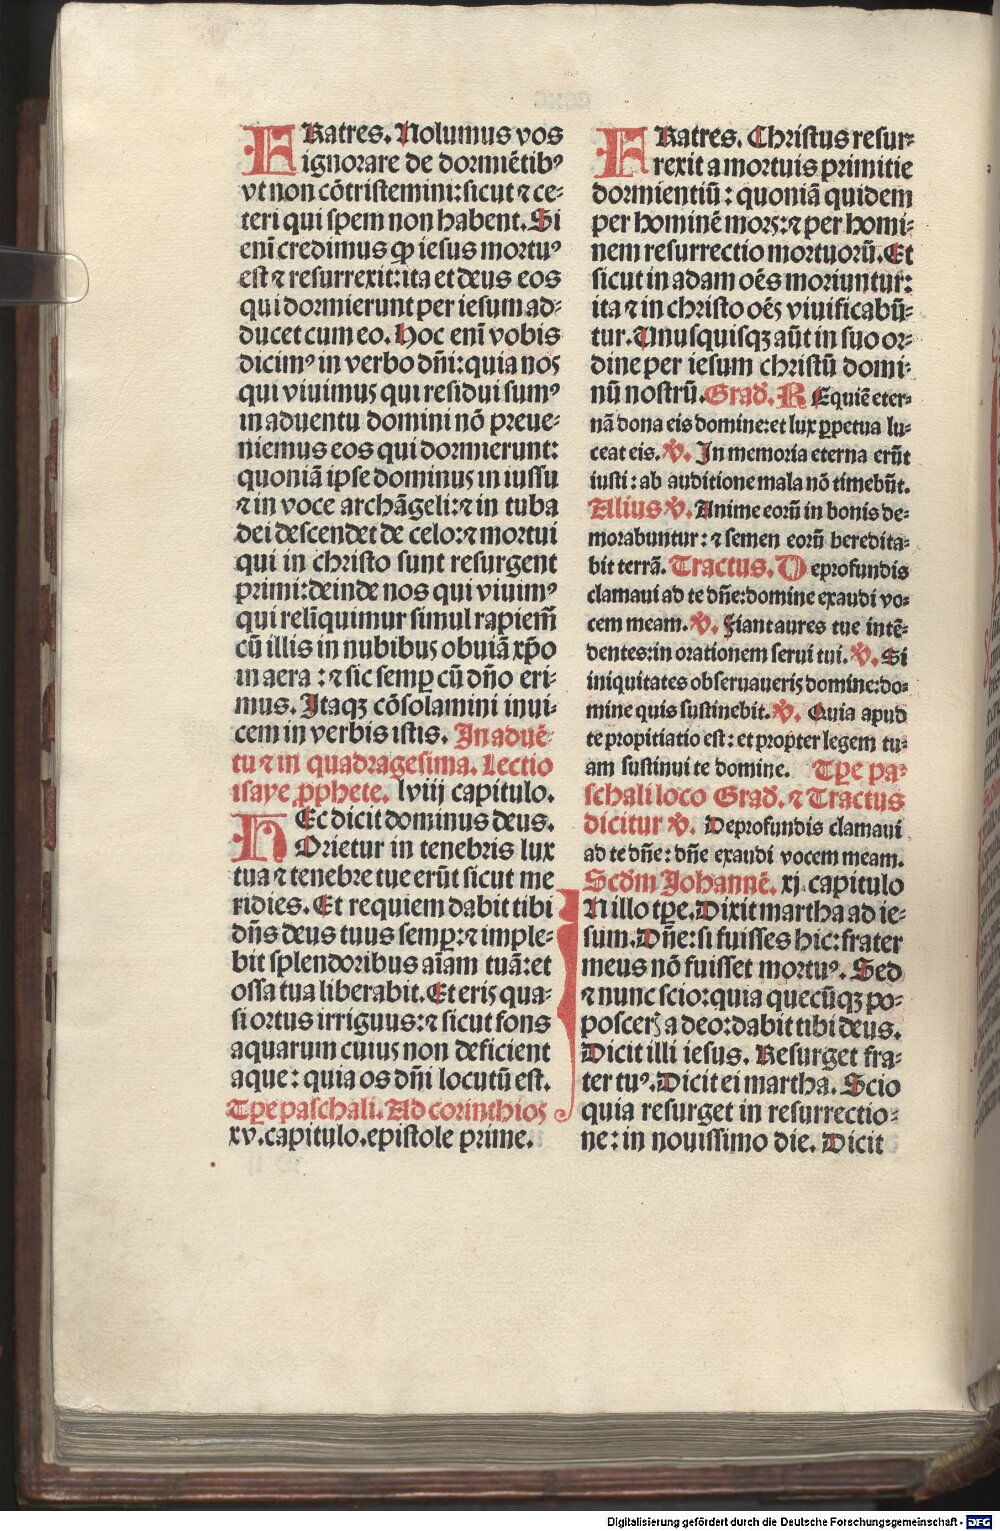 FRatres. Nolumus vos
ignorare de dormiētibꝰ
vt non cōtristemini: sicut ⁊ ce⸗
teri qui spem non habent. Si
enī credimus ꝙ iesus mortuꝰ
est ⁊ resurrexit: ita et deus eos
qui dormierunt per iesum ad⸗
ducet cum eo. Hoc enī vobis
dicimꝰ in verbo dn̄i: quia nos
qui viuimus qui residui sumꝰ
in aduentu domini nō preue⸗
niemus eos qui dormierunt:
quoniā ipse dominus in iussu
⁊ in voce archāgeli: ⁊ in tuba
dei descendet de celo: ⁊ mortui
qui in christo sunt resurgent
primi: deinde nos qui viuimꝰ
qui relīquimur simul rapiem̄
cū illis in nubibus obuiā xp̄o
in aera : ⁊ sic semꝑ cū dn̄o eri⸗
mus. Itaqꝫ cōsolamini inui⸗
cem in verbis istis. In aduē⸗
tu ⁊ in quadragesima. Lectio
isaye ꝓphete. lviij capitulo.
HEc dicit dominus deus.
Orietur in tenebris lux
tua ⁊ tenebre tue erūt sicut me
ridies. Et requiem dabit tibi
dn̄s deus tuus semꝑ: ⁊ imple⸗
bit splendoribus aīam tuā: et
ossa tua liberabit. Et eris qua⸗
si ortus irriguus: ⁊ sicut fons
aquarum cuius non deficient
aque: quia os dn̄i locutū est.
Tꝑe paschali. Ad corinthios
xv. capitulo. epistole prime.
FRatres. Christus resur⸗
rexit a mortuis primitie
dormientiū: quoniā quidem
per hominē mors: ⁊ per homi⸗
nem resurrectio mortuorū. Et
sicut in adam oēs moriuntur:
ita ⁊ in christo oēs viuificabū⸗
tur. Unusquisqꝫ aūt in suo or⸗
dine per iesum christū domi⸗
nū nostrū. Grad̄. REquiē eter⸗
nā dona eis domine: et lux ꝑpetua lu⸗
ceat eis. ℣. In memoria eterna erūt
iusti: ab auditione mala nō timebūt.
Alius ℣. Anime eorū in bonis de⸗
morabuntur: ⁊ semen eorū heredita⸗
bit terrā. Tractus. Deprofundis
clamaui ad te dn̄e: domine exaudi vo⸗
cem meam. ℣. Fiant aures tue intē⸗
dentes: in orationem serui tui. ℣. Si
iniquitates obseruaueris domine: do⸗
mine quis sustinebit. ℣. Quia apud
te propitiatio est: et propter legem tu⸗
am sustinui te domine. Tꝑe pa⸗
schali loco Grad̄. ⁊ Tractus
dicitur ℣. Deprofundis clamaui
ad te dn̄e: dn̄e exaudi vocem meam.
Scd̄m Johannē. xj. capitulo
IN illo tꝑe. Dixit martha ad ie⸗
sum. Dn̄e: si fuisses hic: frater
meus nō fuisset mortuꝰ. Sed
⁊ nunc scio: quia quecūqꝫ po⸗
posceris a deo: dabit tibi deus.
Dicit illi iesus. Resurget fra⸗
ter tuꝰ. Dicit ei martha. Scio
quia resurget in resurrectio⸗
ne: in nouissimo die. Dicit
Digitalisierung gefördert durch die Deutsche Forschungsgemeinschaft - DFG